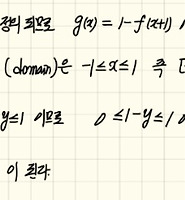 정의 되므로 g(x) = 1-f(x+1)
(domain)은 -1≤x≤1 즉 [
y≤1 이므로 0≤1-y≤1
이 된다.